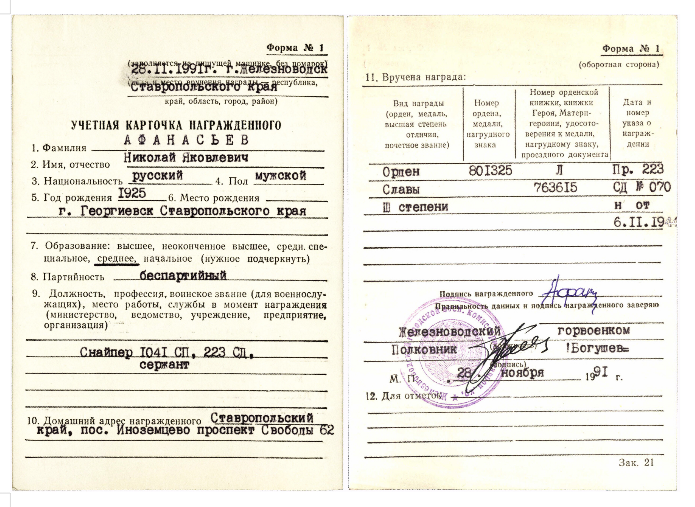 Форма № 1
(заполняется на пишущей машинке, без помарок)
28.II.1991г. г.Железноводск
республика,
Ставропольского края
край, область, город, район)
УЧЕТНАЯ КАРТОЧКА НАГРАЖДЕННОГО
1. Фамилия АФАНАСЬЕВ
2. Имя, отчество Николай Яковлевич
3. Национальность русский 4. Пол мужской
5. Год рождения 1925 6. Место рождения
г. Георгиевск Ставропольского края
7. Образование: высшее, неоконченное высшее, средн. спе-
циальное, среднее, начальное (нужное подчеркнуть)
8. Партийность беспартийный
9. Должность, профессия, воинское звание (для военнослу-
жащих), место работы, службы в момент награждения
(министерство, ведомство, учреждение, предприятие,
организация)
Снайпер I04I СП, 223 СД,
сержант
10. Домашний адрес награжденного Ставропольский
край, пос. Иноземцево проспект Свободы 62
Форма № 1
(оборотная сторона)
11. Вручена награда:
Вид награды (ордена, медаль, высшая степень отличия, почетное звание)
Номер ордена, медали, нагрудного знака
Номер орденской книжки, книжки Героя, Матери-героини, удостоверения к медали, нагрудному знаку, просадного документа
Дата и номер указа о награждении
Орден 80I325 Л Пр. 223
Славы 7636I5 СД № 070
Ш степени н от
6.II.19
Подпись награжденного
Правильность данных и подпись награжденного заверяю
Железноводский горвоенком
Полковник Богушев
(подпись)
М. П. 28 ноября 1991 г.
12. Для отметок
Зак. 21